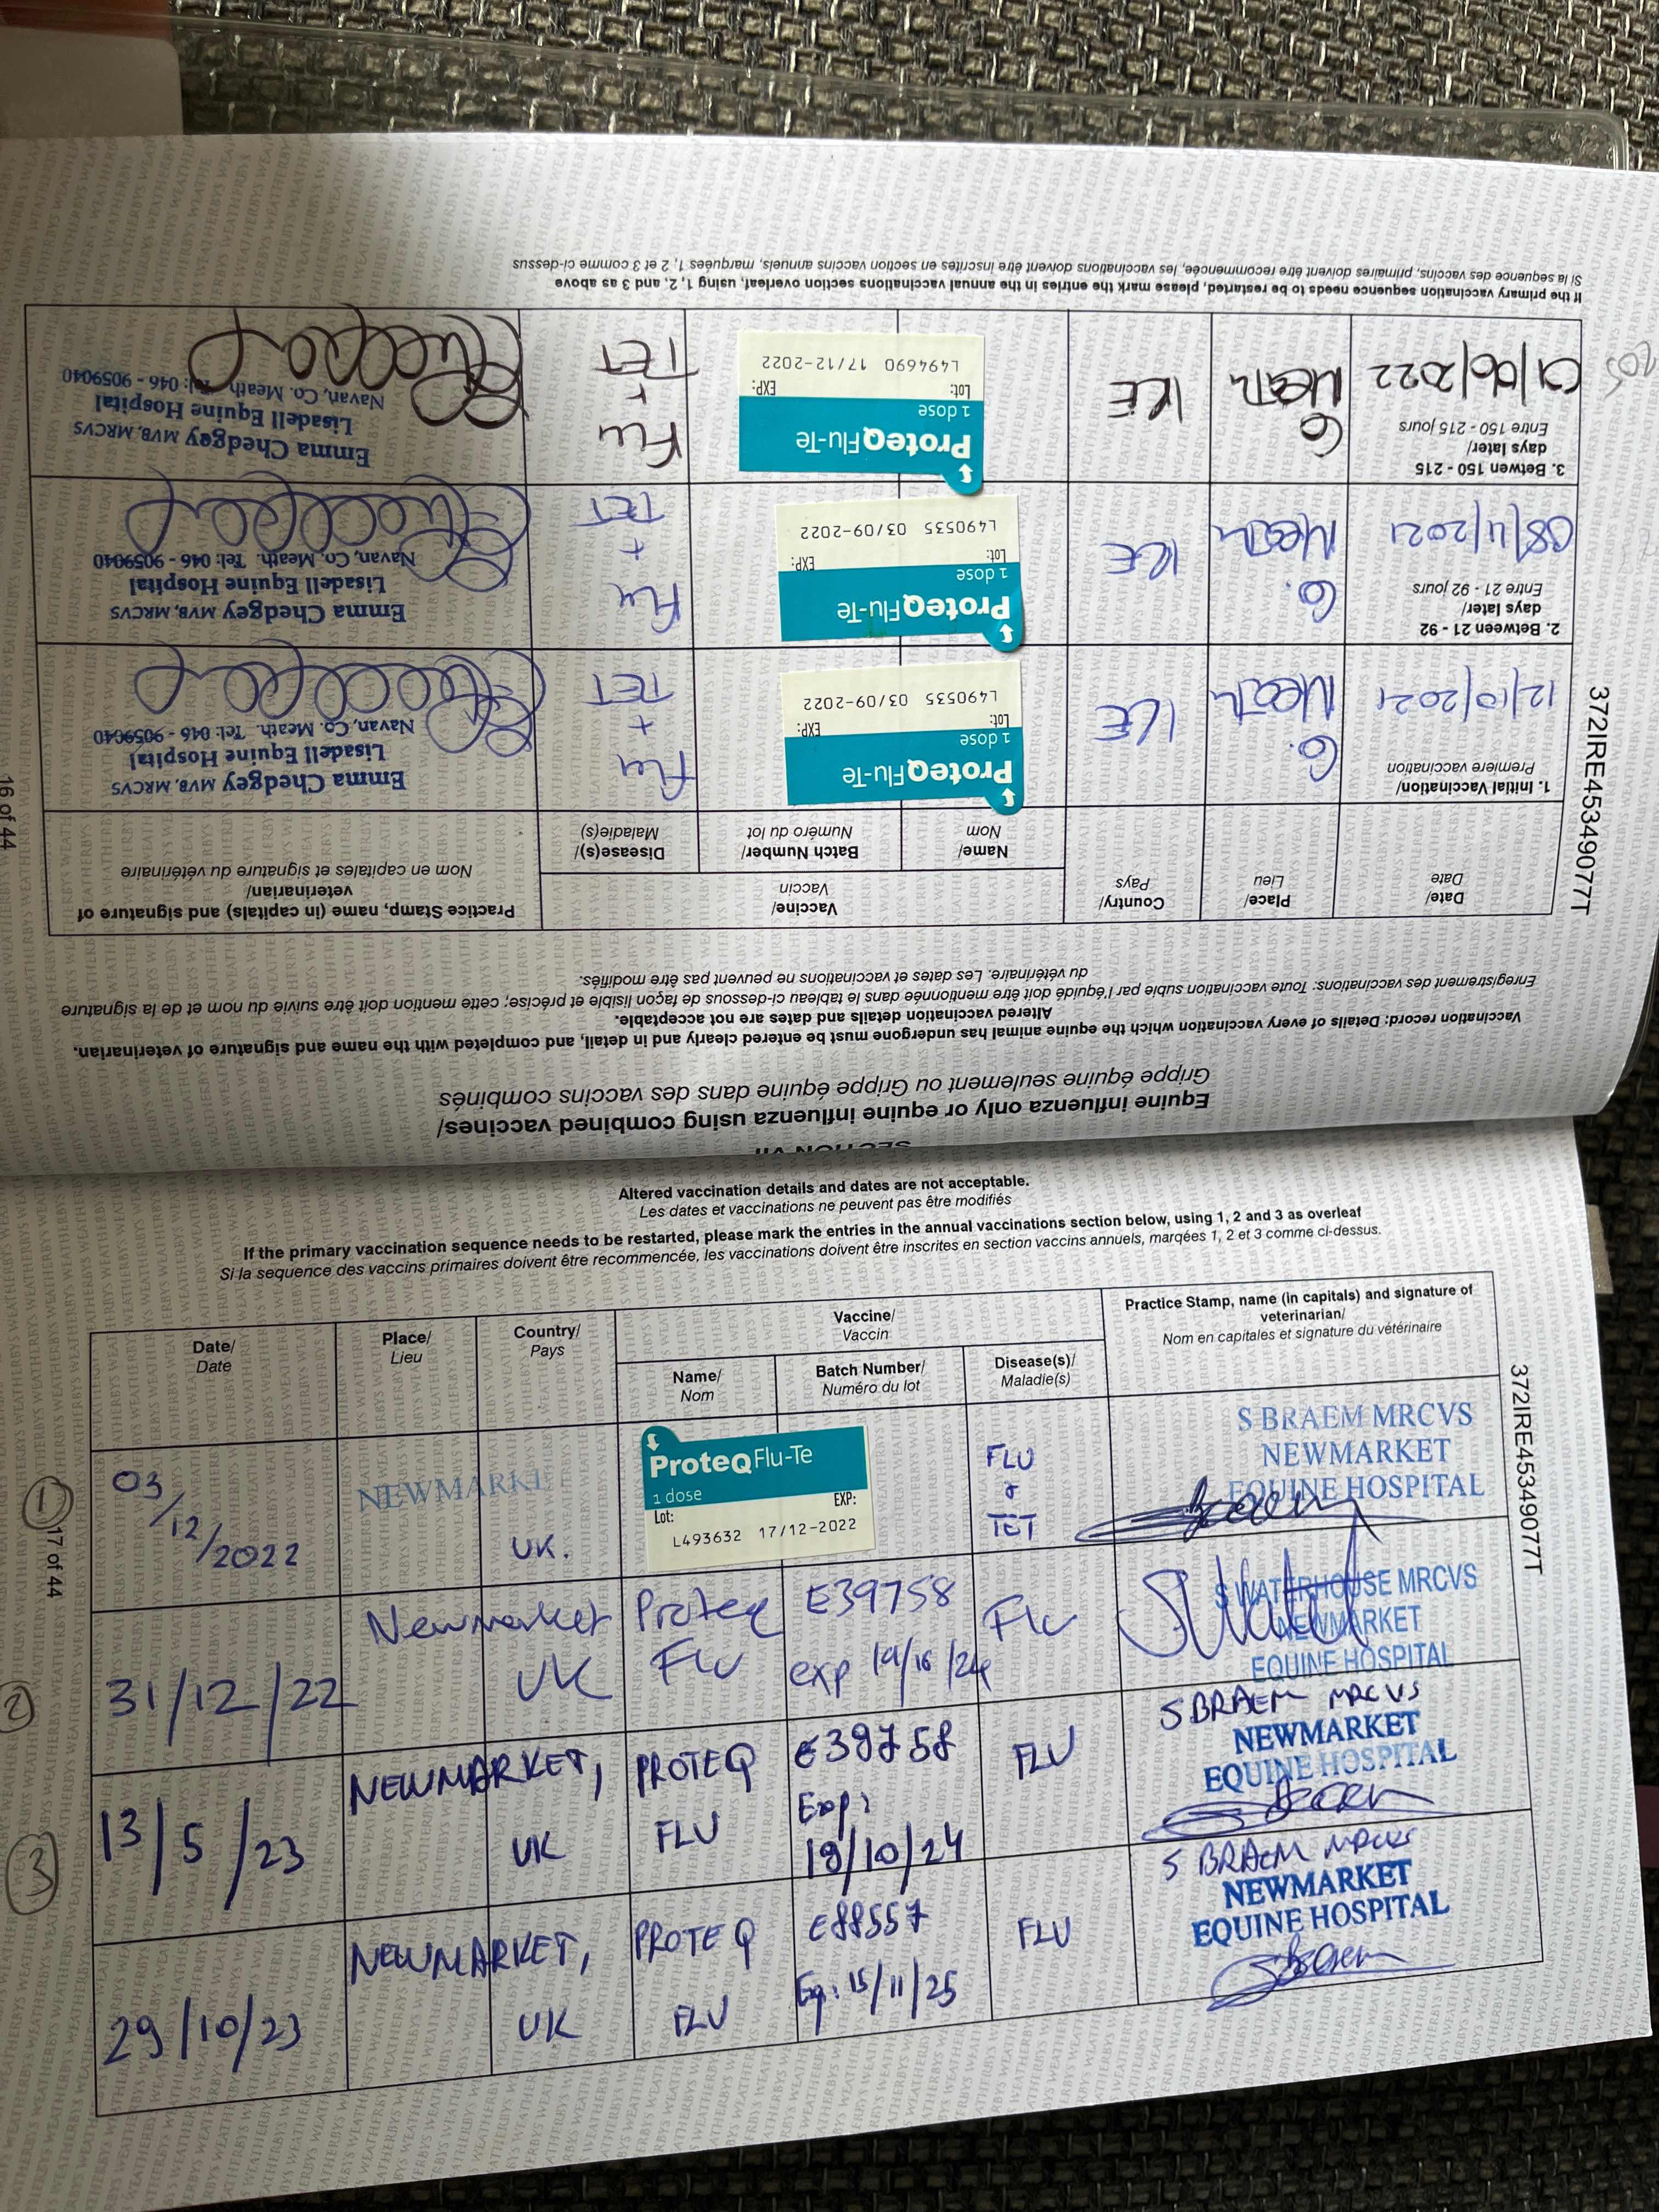 372IRE45349077T
16 of 44
SECTION VII
Equine influenza only or equine influenza using combined vaccines/
Grippe équine seulement ou Grippe équine dans des vaccins combinés
Vaccination record: Details of every vaccination which the equine animal has undergone must be entered clearly and in detail, and completed with the name and signature of veterinarian.
Altered vaccination details and dates are not acceptable.
Enregistrement des vaccinations: Toute vaccination subie par l'équidé doit être mentionnée dans le tableau ci-dessous de façon lisible et précise; cette mention doit être suivie du nom et de la signature
du vétérinaire. Les dates et vaccinations ne peuvent pas être modifiés.
Date/
Date
Place/
Lieu
Country/
Pays
Vaccine/
Vaccin
Name/
Nom
Batch Number/
Numéro du lot
Disease(s)/
Maladie(s)
Practice Stamp, name (in capitals) and signature of
veterinarian/
Nom en capitales et signature du vétérinaire
1. Initial Vaccination/
Première vaccination
12/10/2021
Co.
Meath
IRE
ProteqFlu-Te
1 dose
Lot: EXP:
L490535 03/09-2022
Flu
+
TET
Emma Chedgey MVB, MRCVS
Lisadell Equine Hospital
Navan, Co. Meath. Tel: 046 - 9059040
2. Between 21 - 92
days later/
Entre 21 - 92 jours
08/11/2021
Co.
Meath
IRE
ProteqFlu-Te
1 dose
Lot: EXP:
L490535 03/09-2022
Flu
+
TET
Emma Chedgey MVB, MRCVS
Lisadell Equine Hospital
Navan, Co. Meath. Tel: 046 - 9059040
3. Betwen 150 - 215
days later/
Entre 150 - 215 jours
01/06/2022
Co
Meath
IRE
ProteqFlu-Te
1 dose
Lot: EXP:
L494690 17/12-2022
Flu
+
TET
Emma Chedgey MVB, MRCVS
Lisadell Equine Hospital
Navan, Co. Meath. Tel: 046 - 9059040
205
If the primary vaccination sequence needs to be restarted, please mark the entries in the annual vaccinations section overleaf, using 1, 2, and 3 as above
Si la sequence des vaccins, primaires doivent être recommencée, les vaccinations doivent être inscrites en section vaccins annuels, marquées 1, 2 et 3 comme ci-dessus
Altered vaccination details and dates are not acceptable.
Les dates et vaccinations ne peuvent pas être modifiés
If the primary vaccination sequence needs to be restarted, please mark the entries in the annual vaccinations section below, using 1, 2 and 3 as overleaf
Si la sequence des vaccins primaires doivent être recommencée, les vaccinations doivent être inscrites en section vaccins annuels, marqées 1, 2 et 3 comme ci-dessus.
Date/
Date
Place/
Lieu
Country/
Pays
Vaccine/
Vaccin
Name/
Nom
Batch Number/
Numéro du lot
Disease(s)/
Maladie(s)
Practice Stamp, name (in capitals) and signature of
veterinarian/
Nom en capitales et signature du vétérinaire
372IRE45349077T
17 of 44
1
03/12/2022
NEWMARKET
UK.
ProteqFlu-Te
1 dose
Lot: EXP:
L493632 17/12-2022
FLU
+
TET
S BRAEM MRCVS
NEWMARKET
EQUINE HOSPITAL
2
31/12/22
Newmarket
UK
Proteq
Flu
E39758
exp 19/10/24
Flu
S WATERHOUSE MRCVS
NEWMARKET
EQUINE HOSPITAL
3
13/5/23
NEWMARKET,
UK
PROTEQ
FLU
E39758
Exp:
19/10/24
FLU
S BRAEM MRCVS
NEWMARKET
EQUINE HOSPITAL
29/10/23
NEWMARKET,
UK
PROTEQ
FLU
E88557
Exp: 15/11/25
FLU
S BRAEM MRCVS
NEWMARKET
EQUINE HOSPITAL